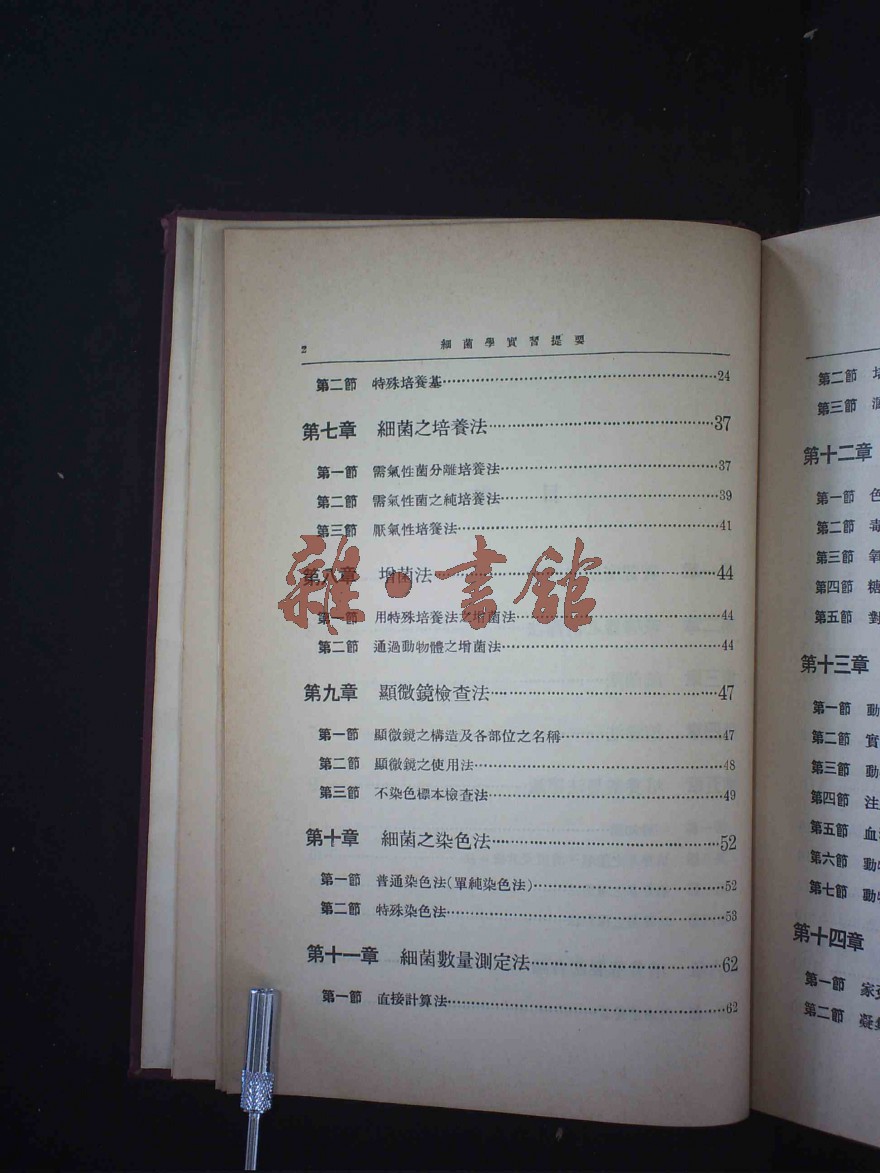 2 細菌學實習提要
第二節 特殊培養基……24
第七章 細菌之培養法……37
第一節 需氣性菌分離培養法……37
第二節 需氣性菌之純培養法……39
第三節 厭氣性培養法……41
第八章 增菌法……44
第一節 用特殊培養法之增菌法……44
第二節 通過動物體之增菌法……44
第九章 顯微鏡檢查法……47
第一節 顯微鏡之構造及各部位之名稱……47
第二節 顯微鏡之使用法……48
第三節 不染色標本檢查法……49
第十章 細菌之染色法……52
第一節 普通染色法(單純染色法)……52
第二節 特殊染色法……53
第十一章 細菌數量測定法……62
第一節 直接計算法……62
雜·書館
第二節
第三節
第十二章
第一節 色
第二節 毒
第三節 氧
第四節 糖
第五節 對
第十三章
第一節 動
第二節 實
第三節 動
第四節 注
第五節 血
第六節 動
第七節 動
第十四章
第一節 家
第二節 凝